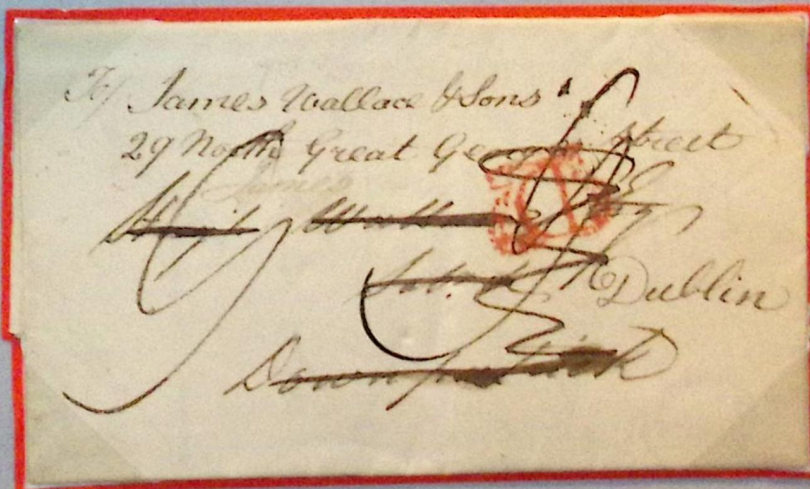 To/ James Wallace & Sons
29 North Great George Street
James
Hugh Wallace Esq
Dublin
Downpatrick